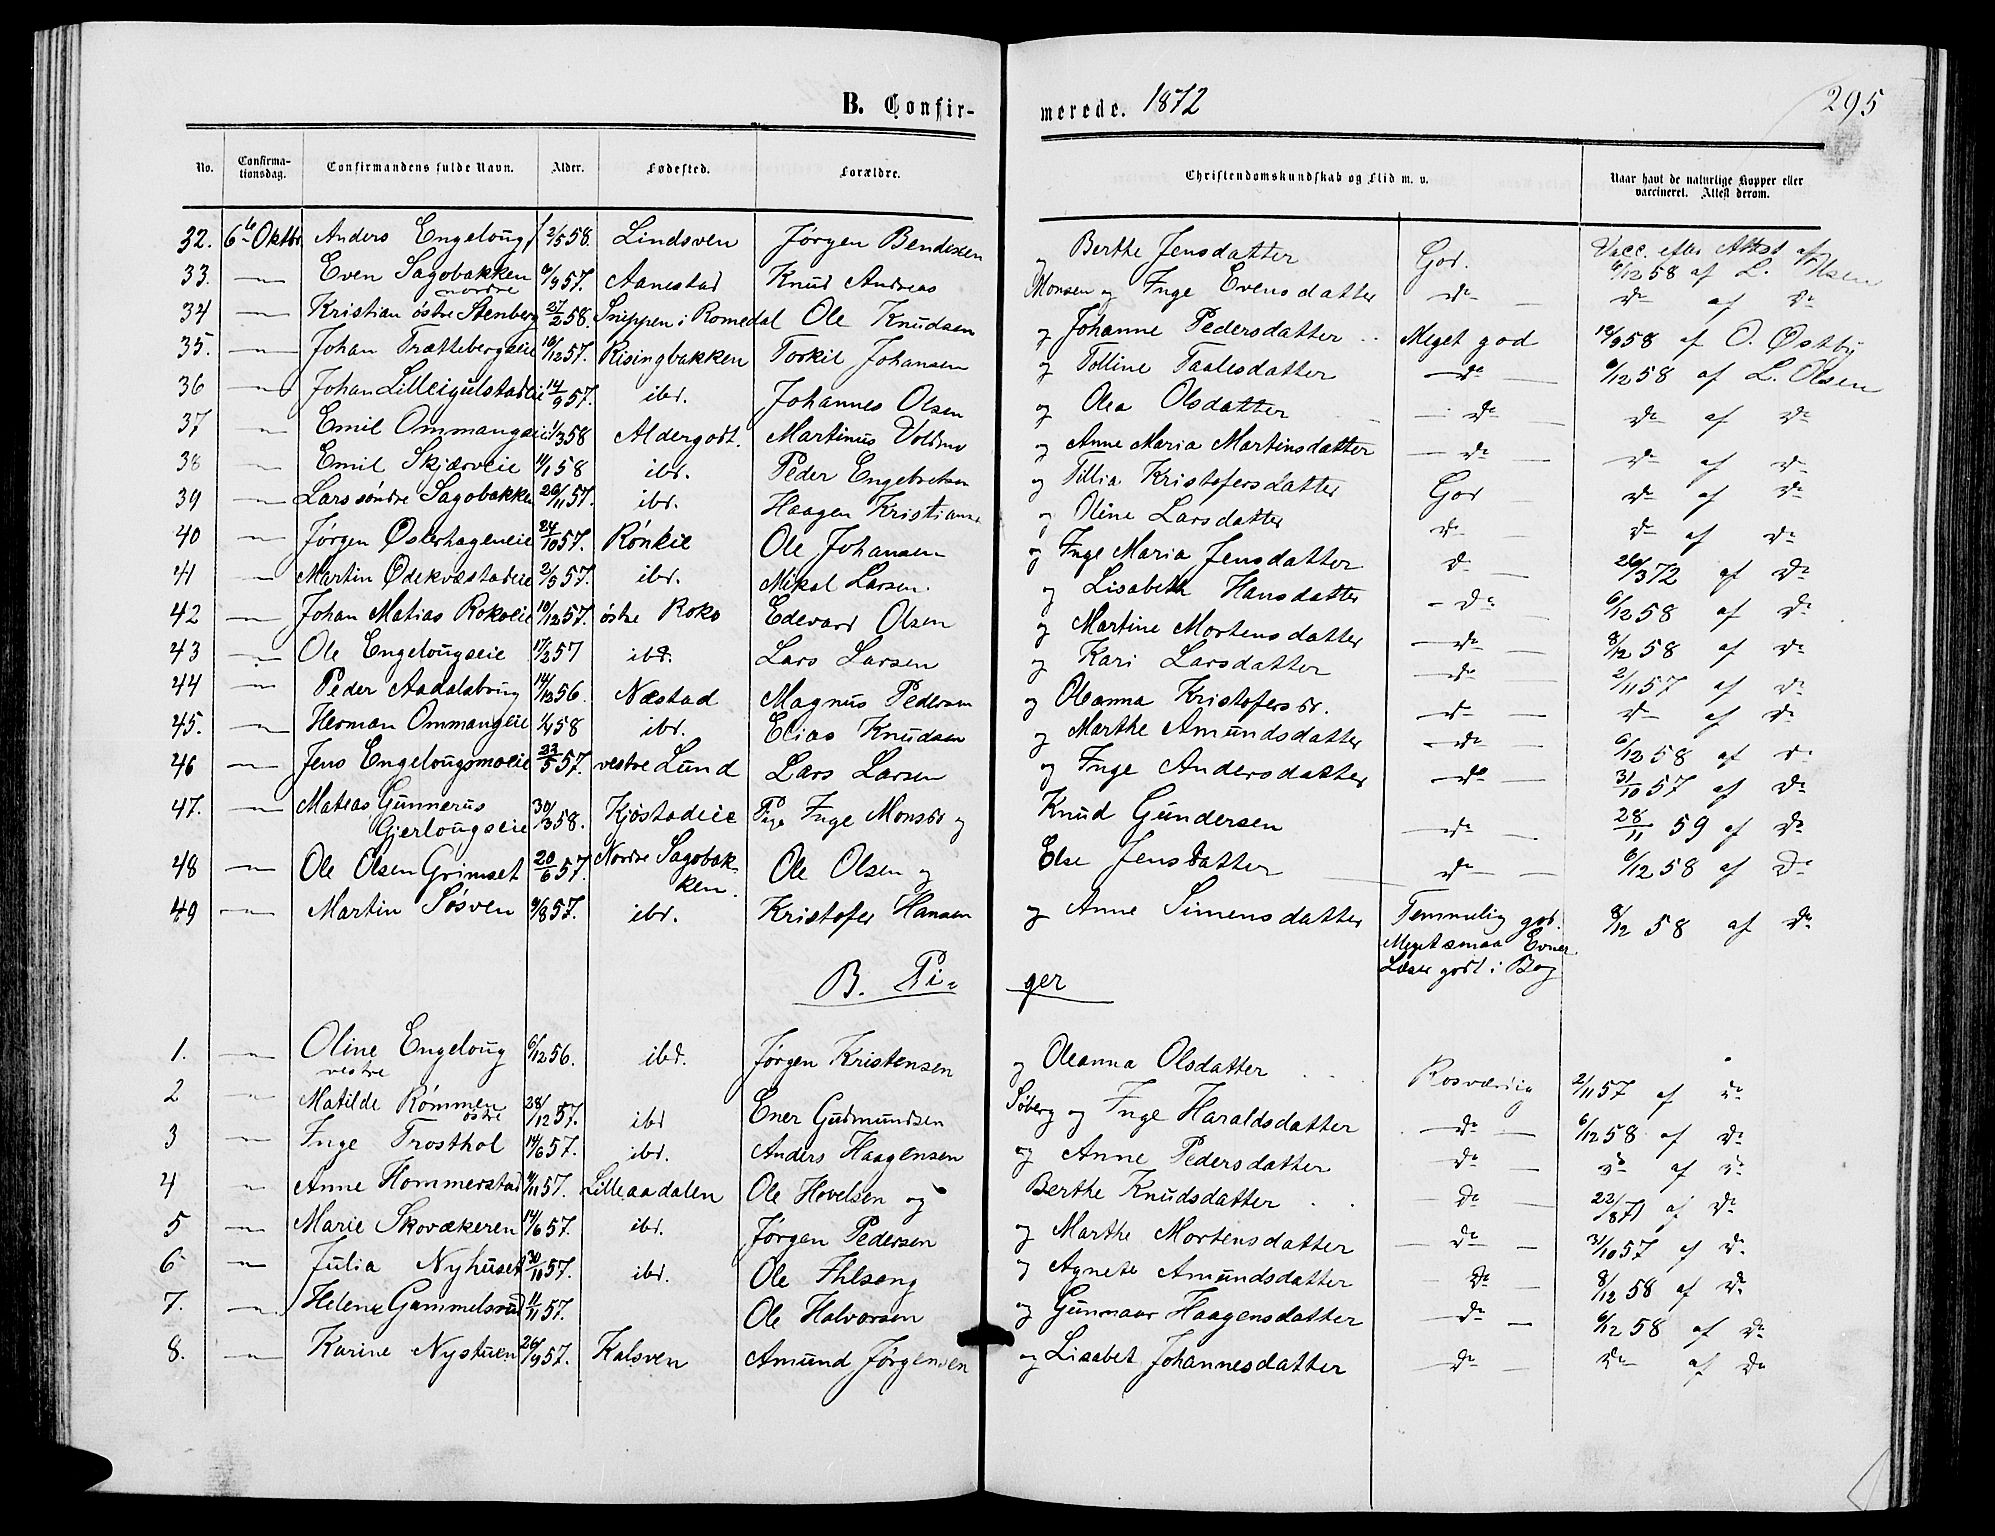 B. Confir-
merede. 1872
295
No. Confirma-tionsdag. Confirmandens fulde Navn. Alder. Fødested. Forældre. Christendomskundskab og Flid m. v. Naar havt de naturlige Kopper eller vaccineret. Attest derom.
32. 6te Oktbr. Anders Engeloug 2/5 58. Lindsven Jørgen Bendixen og Berthe Jensdatter God. Vacc. efter Attst af
33. — Even Sagobakken nordre 6/9 57. Aanestad Knud Andreas Monsen og Inge Evensdatter do 6/12 58 af L. Olsen
34 — Kristian østre Stenberg 27/2 58. Sneppen i Romedal Ole Knudsen og Johanne Pedersdatter Meget god do af do
35. — Johan Trættebergeie 18/12 57. Risingbakken Torkil Johansen og Tolline Taalesdatter do 12/9 58 af O. Østby
36 — Johan Lilleigulstadeie 14/9 57. ibd. Johannes Olsen og Olea Olsdatter do 6/12 58 af L. Olsen
37 — Emil Ommangeie 1/3 58 Aldergodt. Martinus Voldmo og Anne Maria Martinsdatter do do af do
38 — Emil Skjærveie 11/1 58 ibd. Peder Engebretsen og Tillia Kristofersdatter God do af do
39 — Lars søndre Sagobakke 26/11 57. ibd. Haagen Kristians. og Oline Larsdatter do do af do
40 — Jørgen Østerhageneie 24/10 57. Rønkie Ole Johansen og Inge Maria Jensdatter do do af do
41 — Martin Ødekvæstadeie 2/3 57. ibd. Mikal Larsen. og Lisabeth Hansdatter do 26/3 72 af do
42 — Johan Matias Rokoeie 10/12 57. østre Roko Edevard Olsen og Martine Mortensdatter do 6/12 58 af do
43 — Ole Engelougseie 17/2 57 ibd. Lars Larsen og Kari Larsdatter do 8/12 58 af do
44 — Peder Aadalsbrug 14/12 56. Næstad Magnus Pedersen og Oleanna Kristofersdr. do 2/11 57 af do
45. — Herman Ommangeie 1/4 58 ibd. Elias Knudsen og Marthe Amundsdatter do do af do
46 — Jens Engelougsmoeie 23/5 57. vestre Lund Lars Larsen og Inge Andersdatter do 6/12 58 af do
47. — Matias Gunnerus Gjerlougseie 30/3 58. Kjøstadeie Pige Inge Monsdr og Knud Gundersen do 31/10 57 af do
28/11 59 af do
48 — Ole Olsen Grimset 20/6 57. Nordre Sagobakken. Ole Olsen og Else Jensdatter do 6/12 58 af do
49 — Martin Søsven 9/8 57. ibd. Kristofer Hansen og Anne Simensdatter Temmelig god. 8/12 58 af do
Meget smaa Evner
Læser godt i Bog
B. Piger
1. — Oline Engeloug vestre 6/12 56. ibd. Jørgen Kristensen og Oleanna Olsdatter Rosværdig 2/11 57 af do
2 — Matilde Rømmen østre 28/12 57. ibd Ener Gudmundsen Søberg og Inge Haraldsdatter do 6/12 58 af do
3 — Inge Trosthol 14/6 57. ibd. Anders Haagensen og Anne Pedersdatter do do af do
4 — Anne Hommerstad 4/11 57. Lilleaadalen Ole Hovelsen og Berthe Knudsdatter do 22/8 71 af do
5 — Marie Skovækeren 14/6 57. ibd. Jørgen Pedersen og Marthe Mortensdatter do 31/10 57 af do
6 — Julia Nyhuset 30/10 57. ibd. Ole Ihlseng og Agnete Amundsdatter do 8/12 58 af do
7. — Helene Gammelsrud 11/11 57. Ole Halvorsen og Gunnaar Haagensdatter do 6/12 58 af do
8. — Karine Nystuen 26/9 57. Kalsven Amund Jørgensen og Lisabet Johannesdatter do do af do